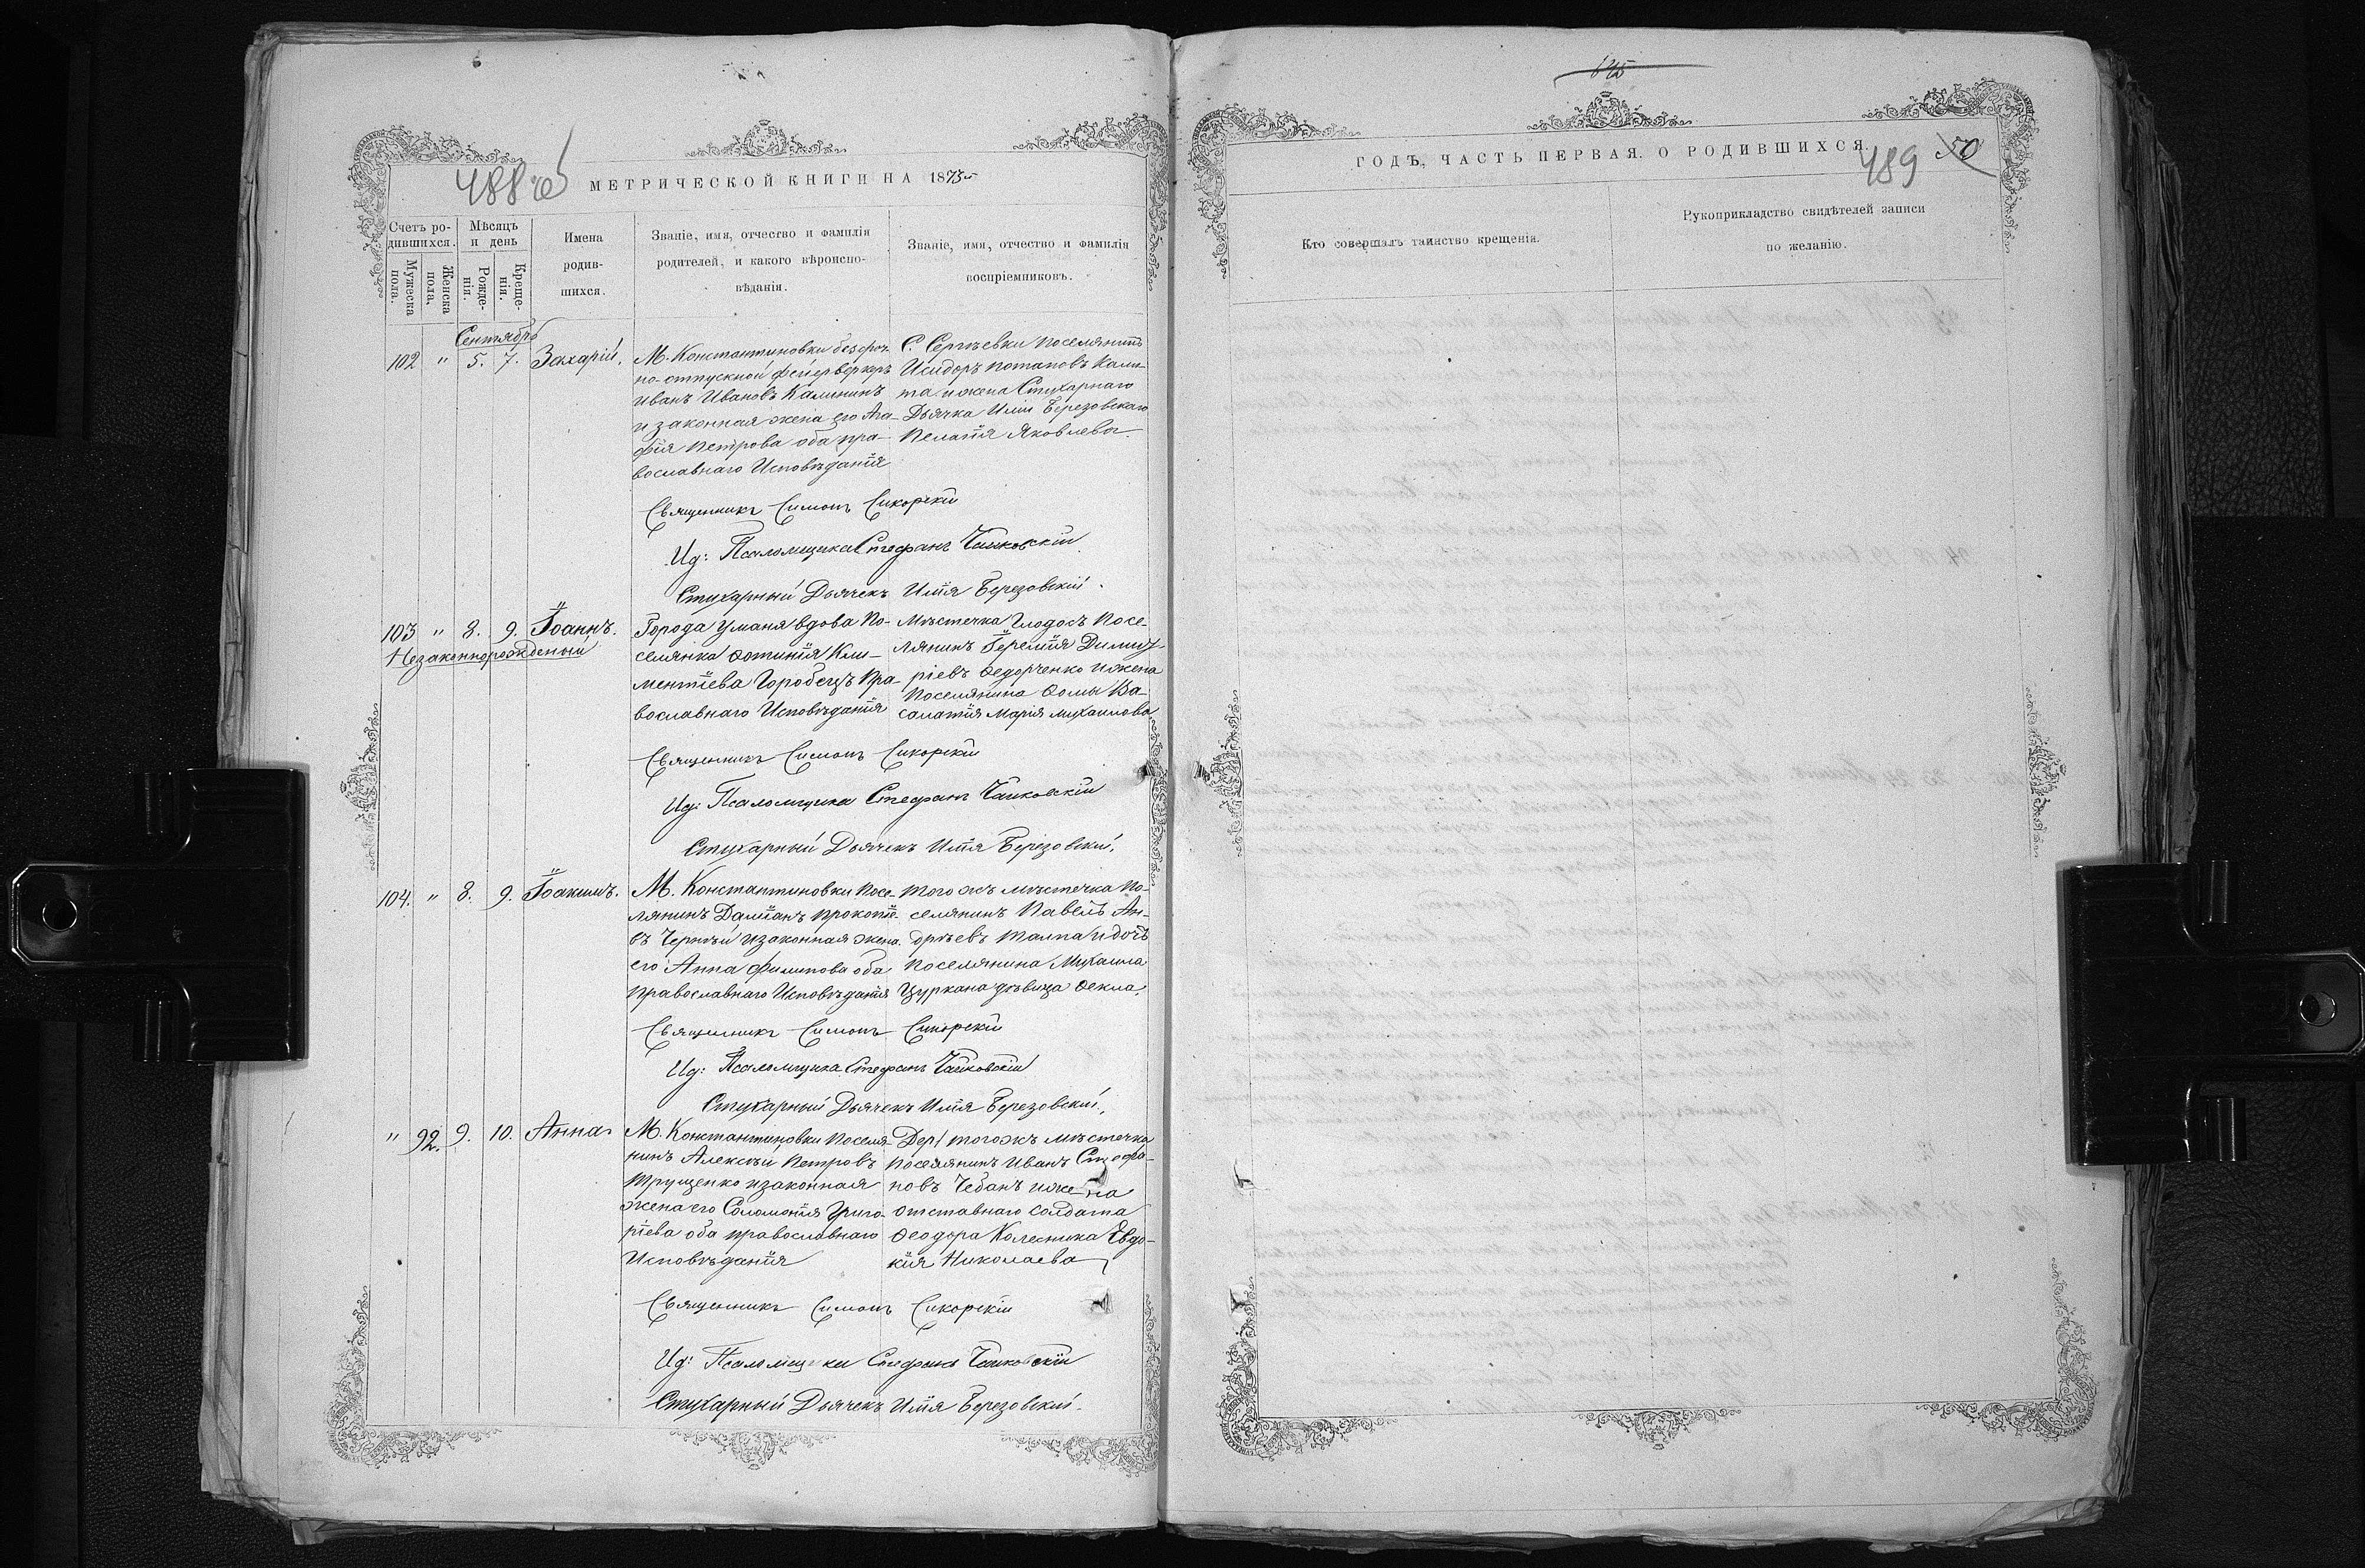 488 об
МЕТРИЧЕСКОЙ КНИГИ НА 1875
Счетъ ро-
дившихся.
Мужеска пола.
Женска пола.
Мѣсяцъ
и день
Рожде-
нія.
Креще-
нія.
Имена
родив-
шихся.
Званіе, имя, отчество и фамилія
родителей, и какого вѣроиспо-
вѣданія.
Званіе, имя, отчество и фамилія
воспріемниковъ.
Сентябрь
102 " 5. 7. Захарій.
М. Константиновки безсроч-
но-отпускной фейерверкеръ
Иванъ Ивановъ Калининъ
и законная жена его Ага-
фія Петрова оба пра-
вославнаго Исповѣданія
С. Сергѣевки поселянинъ
Исидоръ Потаповъ Кали-
та и жена Стихарнаго
Дьячка Иліи Березовскаго
Пелагія Яковлева.
Священникъ Симонъ Сикорскій
Ид: Псаломщика Стефанъ Чайковскій
Стухарный Дьячекъ Илія Березовскій.
103 " 8. 9. Іоаннъ.
Незаконнорожденый
Города Уманя вдова По-
селянка Фотинія Кли-
ментіева Горобецъ Пра-
вославнаго Исповѣданія
Мѣстечка Глодосъ Посе-
лянинъ Іеремія Димит-
ріевъ Федорченко и жена
Поселянина Фомы Ва-
салатія Марія Михаилова
Священникъ Симонъ Сикорскій
Ид: Псаломщика Стефанъ Чайковскій
Стухарный Дьячекъ Илія Березовскій.
104. " 8. 9. Іоакимъ.
М. Константиновки Посе-
лянинъ Даміанъ Прокопіе-
въ Чернѣй и законная жена
его Анна Филипова оба
Православнаго Исповѣданія
Того жъ мѣстечка По-
селянинъ Павелъ Ан-
дрѣевъ Талпа и дочь
Поселянина Михаила
Цуркана дѣвица Фекла.
Священникъ Симонъ Сикорскій
Ид: Псаломщика Стефанъ Чайковскій
Стухарный Дьячекъ Илія Березовскій.
" 92. 9. 10. Анна
М. Константиновки Поселя-
нинъ Алексѣй Петровъ
Трущенко и законная
жена его Соломонія Григо-
ріева оба православнаго
Исповѣданія
тогожъ мѣстечка
Поселянинъ Иванъ Стефа-
новъ Чебанъ и жена
отставнаго Солдата
Феодора Колесника Евдо-
кія Николаева
Священникъ Симонъ Сикорскій
Ид: Псаломщика Стефанъ Чайковскій
Стухарный Дьячекъ Илія Березовскій.
ГОДЪ, ЧАСТЬ ПЕРВАЯ. О РОДИВШИХСЯ.
489
50
Кто совершалъ таинство крещенія.
Рукоприкладство свидѣтелей записи
по желанію.